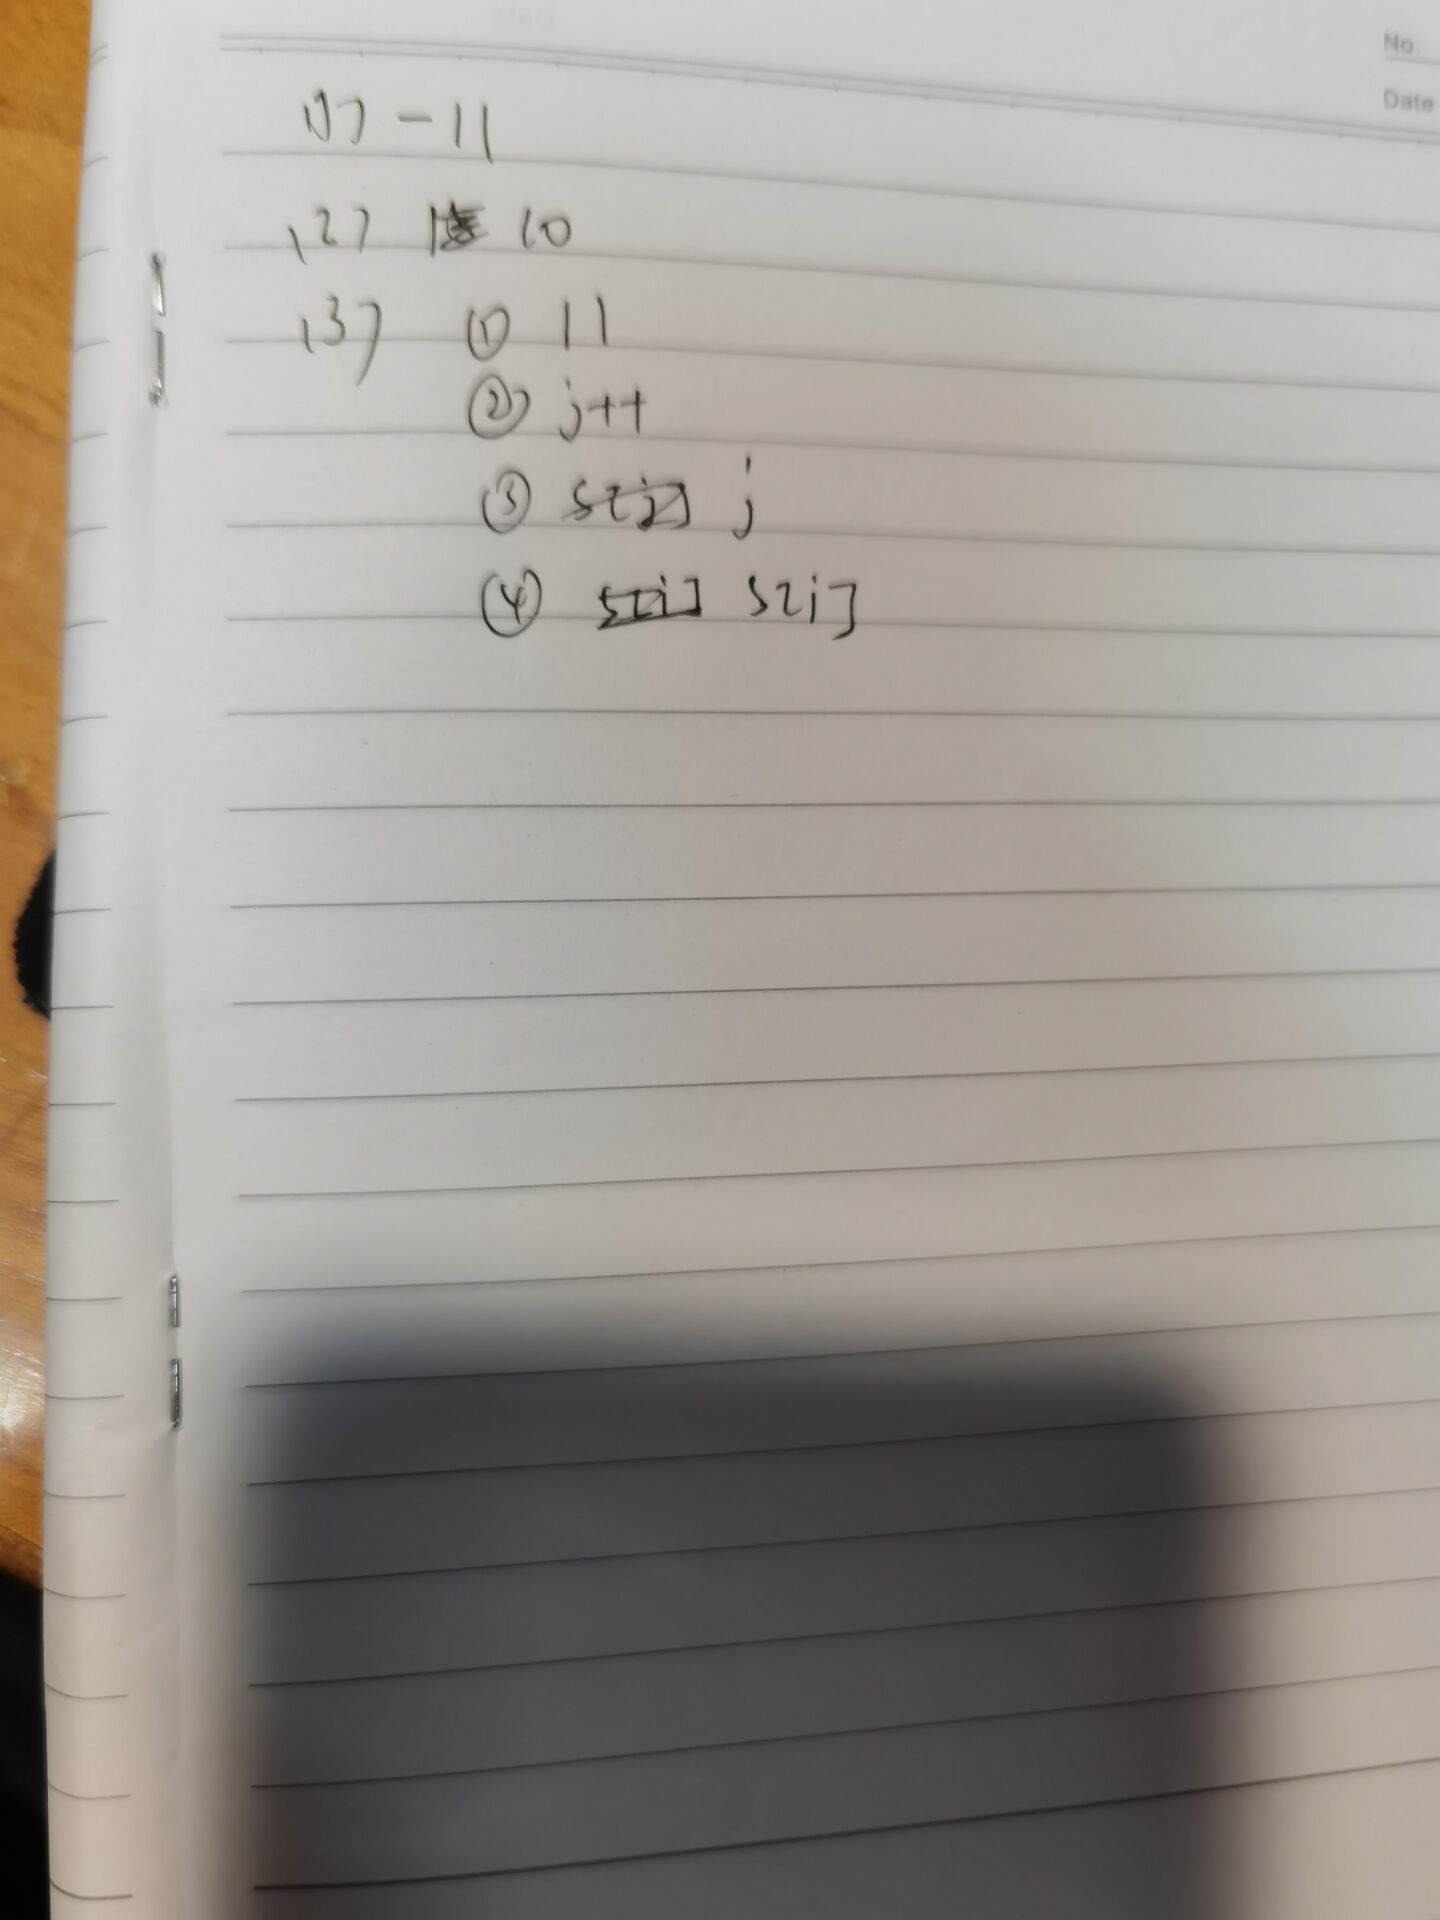 No.
Date
(1) -11
(2) 10
(3) ① 11
② j++
③ s[j] j
④ s[i] s[i]